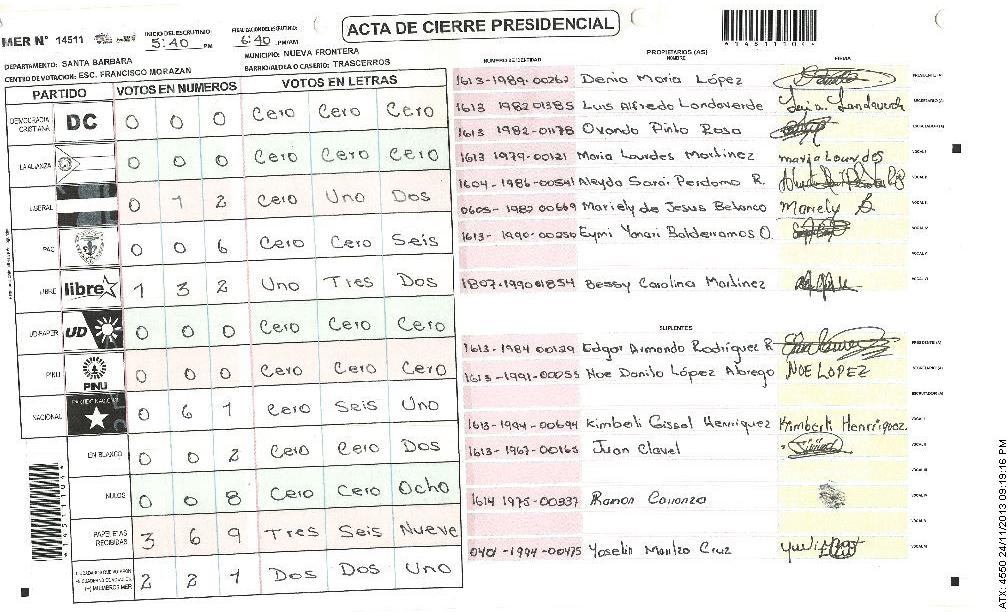 ACTA DE CIERRE PRESIDENCIAL
MER N° 14511
INICIO DEL ESCRUTINIO: 5:40 PM
FINALIZACION DEL ESCRUTINIO: 6:40 PM/AM
DEPARTAMENTO: SANTA BARBARA
MUNICIPIO: NUEVA FRONTERA
CENTRO DE VOTACION: ESC. FRANCISCO MORAZAN
BARRIO/ALDEA O CASERIO: TRASCERROS
PARTIDO VOTOS EN NUMEROS VOTOS EN LETRAS
DEMOCRACIA CRISTIANA DC 0 0 0 Cero Cero Cero
LA ALIANZA 0 0 0 Cero Cero Cero
LIBERAL 0 1 2 Cero Uno Dos
PAC 0 0 6 Cero Cero Seis
LIBRE libre 1 3 2 Uno Tres Dos
UD-FAPER UD 0 0 0 Cero Cero Cero
PINU PINU 0 0 0 Cero Cero Cero
NACIONAL PARTIDO NACIONAL 0 6 1 Cero Seis Uno
EN BLANCO 0 0 2 Cero Cero Dos
NULOS 0 0 8 Cero Cero Ocho
PAPELETAS RECIBIDAS 3 6 9 Tres Seis Nueve
2 2 1 Dos Dos Uno
PROPIETARIOS (AS)
NUMERO DE IDENTIDAD NOMBRE FIRMA
1613-1989-00267 Denia Maria López PRESIDENTE (A)
1613 1982 01385 Luis Alfredo Landaverde Luis A. Landaverde SECRETARIO (A)
1613 1982-01178 Ovando Pinto Rosa ESCRUTADOR (A)
1613 1979-00121 Maria Lourdes Martinez maria Lourdes VOCAL I
1604-1986-00541 Aleyda Sarai Perdomo R. VOCAL II
0605-1982 00669 Mariely de Jesus Belanco Mariely B. VOCAL III
1613-1990-00250 Eymi Yanari Balderramos O. VOCAL IV
VOCAL V
1807-1990 01854 Bessy Carolina Martinez VOCAL VI
SUPLENTES
1613-1984 00129 Edgar Armando Rodríguez R PRESIDENTE (A)
1613-1991-00055 Noe Danilo López Abrego NOE LOPEZ SECRETARIO (A)
ESCRUTADOR (A)
1613-1994-00694 Kimberli Gissel Henriquez Kimberli Henriquez. VOCAL I
1613-1967-00165 Juan Clavel VOCAL II
VOCAL III
1614 1975-00337 Ramon Carranza VOCAL IV
VOCAL V
0401-1994-00475 Yoselin Maritza Cruz VOCAL VI
*14511104*
ATX: 4550 24/11/2013 09:19:16 PM